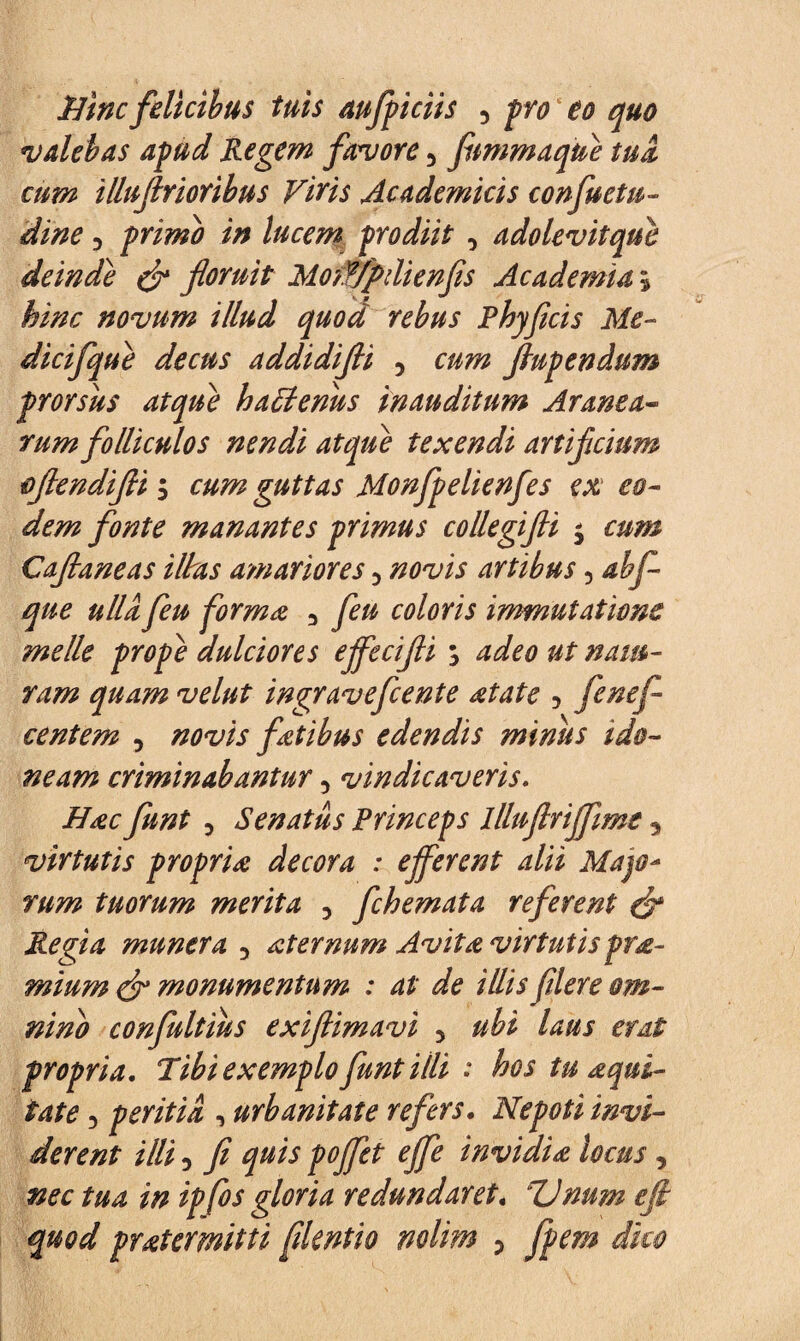 Hinc felicibus tuis auſpiciis , pro eo quo
valebas apud Regem favore , ſummaque tuâ
cum illuſtrioribus Viris Academicis conſuetu-
dine , primò in lucem prodiit , adolevitque
deindè & floruit Monſpelienſis Academia ;
hinc novum illud quod rebus Phyſicis Me-
diciſquè decus addidiſti , cum ſtupendum
prorsùs atquè hactenùs inauditum Aranea-
rum folliculos nendi atquè texendi artificium
oſtendiſti ; cum guttas Monſpelienſes ex eo-
dem fonte manantes primus collegiſti ; cum
Caſtaneas illas amariores , novis artibus , abſ-
que ullâ ſeu formæ , ſeu coloris immutatione
melle propè dulciores effeciſti ; adeo ut natu-
ram quam velut ingraveſcente ætate , ſeneſ-
centem , novis fætibus edendis minùs ido-
neam criminabantur , vindicaveris.
Hæc ſunt , Senatûs Princeps Illuſtriſſime ,
virtutis propriæ decora : efferent alii Majo-
rum tuorum merita , ſchemata referent &
Regia munera , æternum Avitæ virtutis præ-
mium & monumentum : at de illis ſilere om-
ninò conſultiùs exiſtimavi , ubi laus erat
propria. Tibi exemplo ſunt illi : hos tu æqui-
tate , peritiâ , urbanitate refers. Nepoti invi-
derent illi , ſi quis poſſet eſſe invidiæ locus ,
nec tua in ipſos gloria redundaret. Unum eſt
quod prætermitti ſilentio nolim , ſpem dico